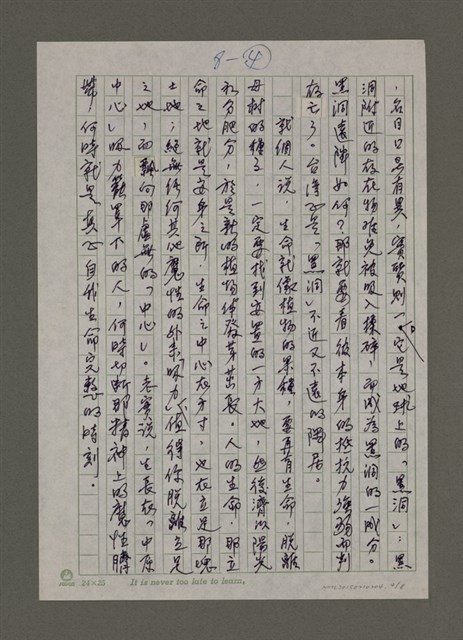 8-④
，名目口号有異，實質則一，它是地球上的「黑洞」：黑
洞附近的存在物难免被吸入揉碎，而成為黑洞的一成分。
黑洞遠隣如何？那就要看彼本身的抵抗力強弱而判
存亡了。台湾正是「黑洞」不近又不遠的隣居。
就個人說，生命就像植物的果種，要再育生命，脫離
母樹的種子，一定要找到安置的一方大地，然後濟以陽光
和分肥分，於是新的植物体發芽茁長。人的生命，那立
命之地就是安身之所，生命之中心在方寸，也在立足那塊
土地；絕無任何其他魔性的外来「吸力」值得你脫離立足
之地，而飄向那虛無的「中心」。老實說，生長在「中原
中心」吸力籠罩下的人，何時切断那精神上的魔性臍
帶，何時就是真正自我生命完整的時刻。
24×25
It is never too late to learn.